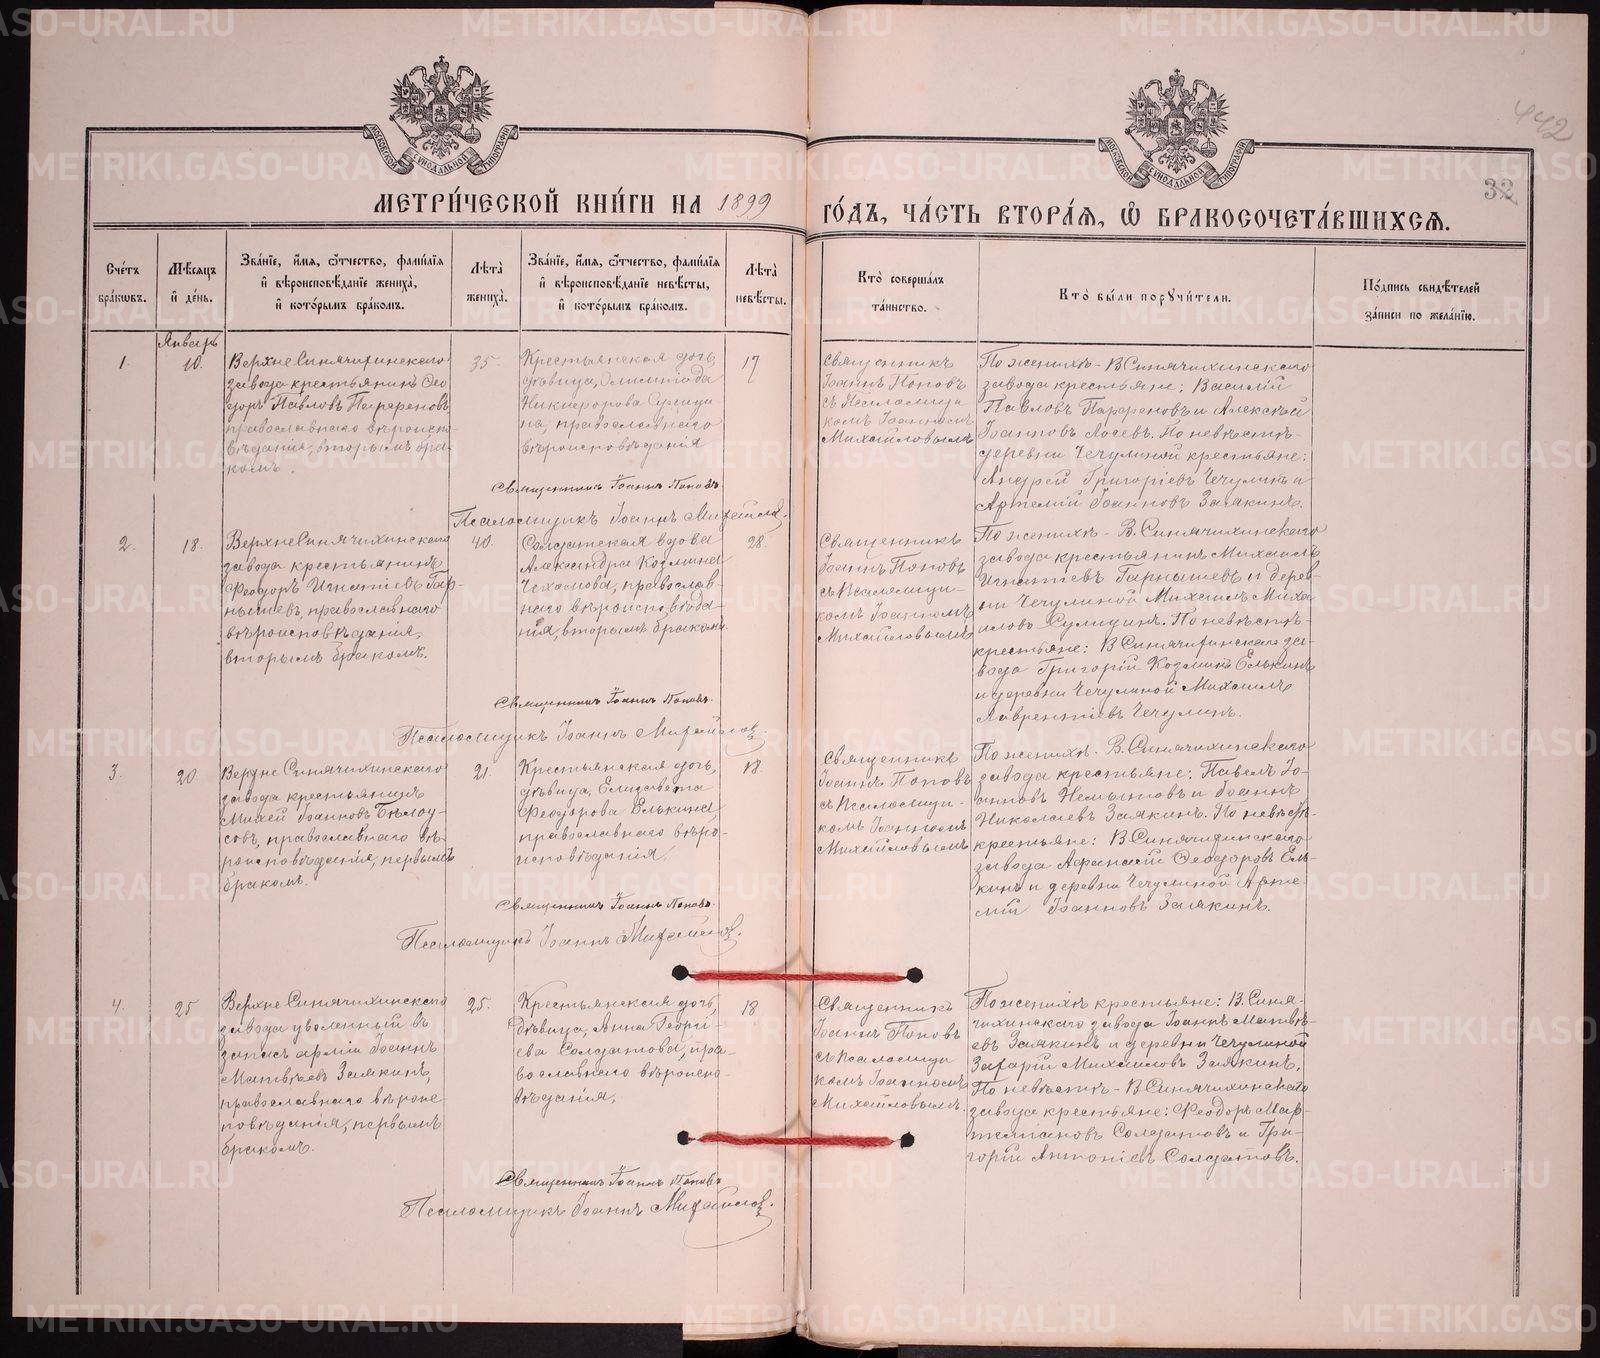 442
32
МОСКОВСКОЙ СѴНОДАЛЬНОЙ ТИПОГРАФІИ
МОСКОВСКОЙ СѴНОДАЛЬНОЙ ТИПОГРАФІИ
МЕТРИ́ЧЕСКОЙ КНИ́ГИ НА 1899 ГО́ДЪ, ЧА́СТЬ ВТОРА́Я, Ѽ БРАКОСОЧЕТА́ВШИХСЯ.
Сче́тъ
бра́ковъ.
Мѣ́сяцъ
и҆ де́нь.
Зва́нїе, и҆́мя, ѻ҆́тчество, фами́лїя
и҆ вѣроисповѣ́данїе жениха̀,
и҆ кото́рымъ бра́комъ.
Лѣта̀
жениха̀.
Зва́нїе, и҆́мя, ѻ҆́тчество, фами́лїя
и҆ вѣроисповѣ́данїе невѣ́сты,
и҆ кото́рымъ бра́комъ.
Лѣта̀
невѣ́сты.
Кто̀ соверша́лъ
та́инство.
Кто̀ бы́ли порꙋчи́тели.
По́дпись свидѣ́телей
за́писи по жела́нїю.
Январь
1.
10.
Верхне Синячихинскаго
завода крестьянинъ Ѳео
доръ Павловъ Парфеновъ
православнаго вѣроиспо
вѣданія, вторымъ бра
комъ.
35.
Крестьянская дочь
дѣвица, Олимпіада
Никифорова
на, православнаго
вѣроисповѣданія
17
Священникъ
Іоаннъ Поповъ
съ Псаломщи
комъ Іоанномъ
Михайловымъ
По женихѣ - В. Синячихинскаго
завода крестьяне: Василій
Павловъ Парфеновъ и Алексѣй
Іоанновъ Лосевъ. По невѣстѣ -
деревни Чечулиной крестьяне:
Андрей Григоріевъ Чечулинъ и
Артемій Іоанновъ Заякинъ.
Священникъ Іоаннъ Поповъ
Псаломщикъ Іоаннъ Михайловъ.
2.
18.
Верхне Синячихинскаго
завода крестьянинъ
Ѳеодоръ Игнатіевъ Гар-
нышевъ, православнаго
вѣроисповѣданія,
вторымъ бракомъ.
40.
Солдатская вдова
Александра Козмина
Чехомова, православ-
наго вѣроисповѣда-
нія, вторымъ бракомъ.
28.
Священникъ
Іоаннъ Поповъ
съ Псаломщи-
комъ Іоанномъ
Михайловымъ
По женихѣ - В. Синячихинскаго
завода крестьянинъ Михаилъ
Игнатіевъ Гарнышевъ и дерев-
ни Чечулиной Михаилъ Миха
иловъ Кулицинъ. По невѣстѣ -
крестьяне: В. Синячихинскаго за-
вода Григорій Козминъ Елькинъ
и деревни Чечулиной Михаилъ
Лаврентіевъ Чечулинъ.
Священникъ Іоаннъ Поповъ.
Псаломщикъ Іоаннъ Михайловъ.
3.
20
Верхне Синячихинскаго
завода крестьянинъ
Михей Іоанновъ Бѣлоу-
совъ, православнаго вѣ-
роисповѣданія, первымъ
бракомъ.
21
Крестьянская дочь,
дѣвица, Елисавета
Ѳеодорова Елькина
православнаго вѣро-
исповѣданія.
18.
Священникъ
Іоаннъ Поповъ
съ Псаломщи-
комъ Іоанномъ
Михайловымъ
По женихѣ - В. Синячихинскаго
завода крестьяне: Павелъ Іо-
анновъ Немытовъ и Іоаннъ
Николаевъ Заякинъ. По невѣстѣ -
крестьяне: В. Синячихинскаго
завода Аѳанасій Ѳеодоровъ Ель-
кинъ и деревни Чечулиной Арте-
мій Іоанновъ Заякинъ.
Священникъ Іоаннъ Поповъ.
Псаломщикъ Іоаннъ Михайловъ.
4.
25
Верхне Синячихинскаго
завода уволенный въ
запасъ арміи Іоаннъ
Матвѣевъ Заякинъ,
православнаго вѣроис-
повѣданія, первымъ
бракомъ.
25.
Крестьянская дочь,
дѣвица, Анна Георгі-
ева Солдатова, пра-
вославнаго вѣроиспо-
вѣданія.
18
Священникъ
Іоаннъ Поповъ
съ Псаломщи
комъ Іоанномъ
Михайловымъ.
По женихѣ крестьяне: В. Синя-
чихинскаго завода Іоаннъ Матвѣ-
евъ Заякинъ и деревни Чечулиной
Захарій Михаиловъ Заякинъ.
По невѣстѣ - В. Синячихинскаго
завода крестьяне: Ѳеодоръ Мар-
темьяновъ Солдатовъ и Гри-
горій Антоніевъ Солдатовъ.
Священникъ Іоаннъ Поповъ
Псаломщикъ Іоаннъ Михайловъ.
METRIKI.GASO-URAL.RU